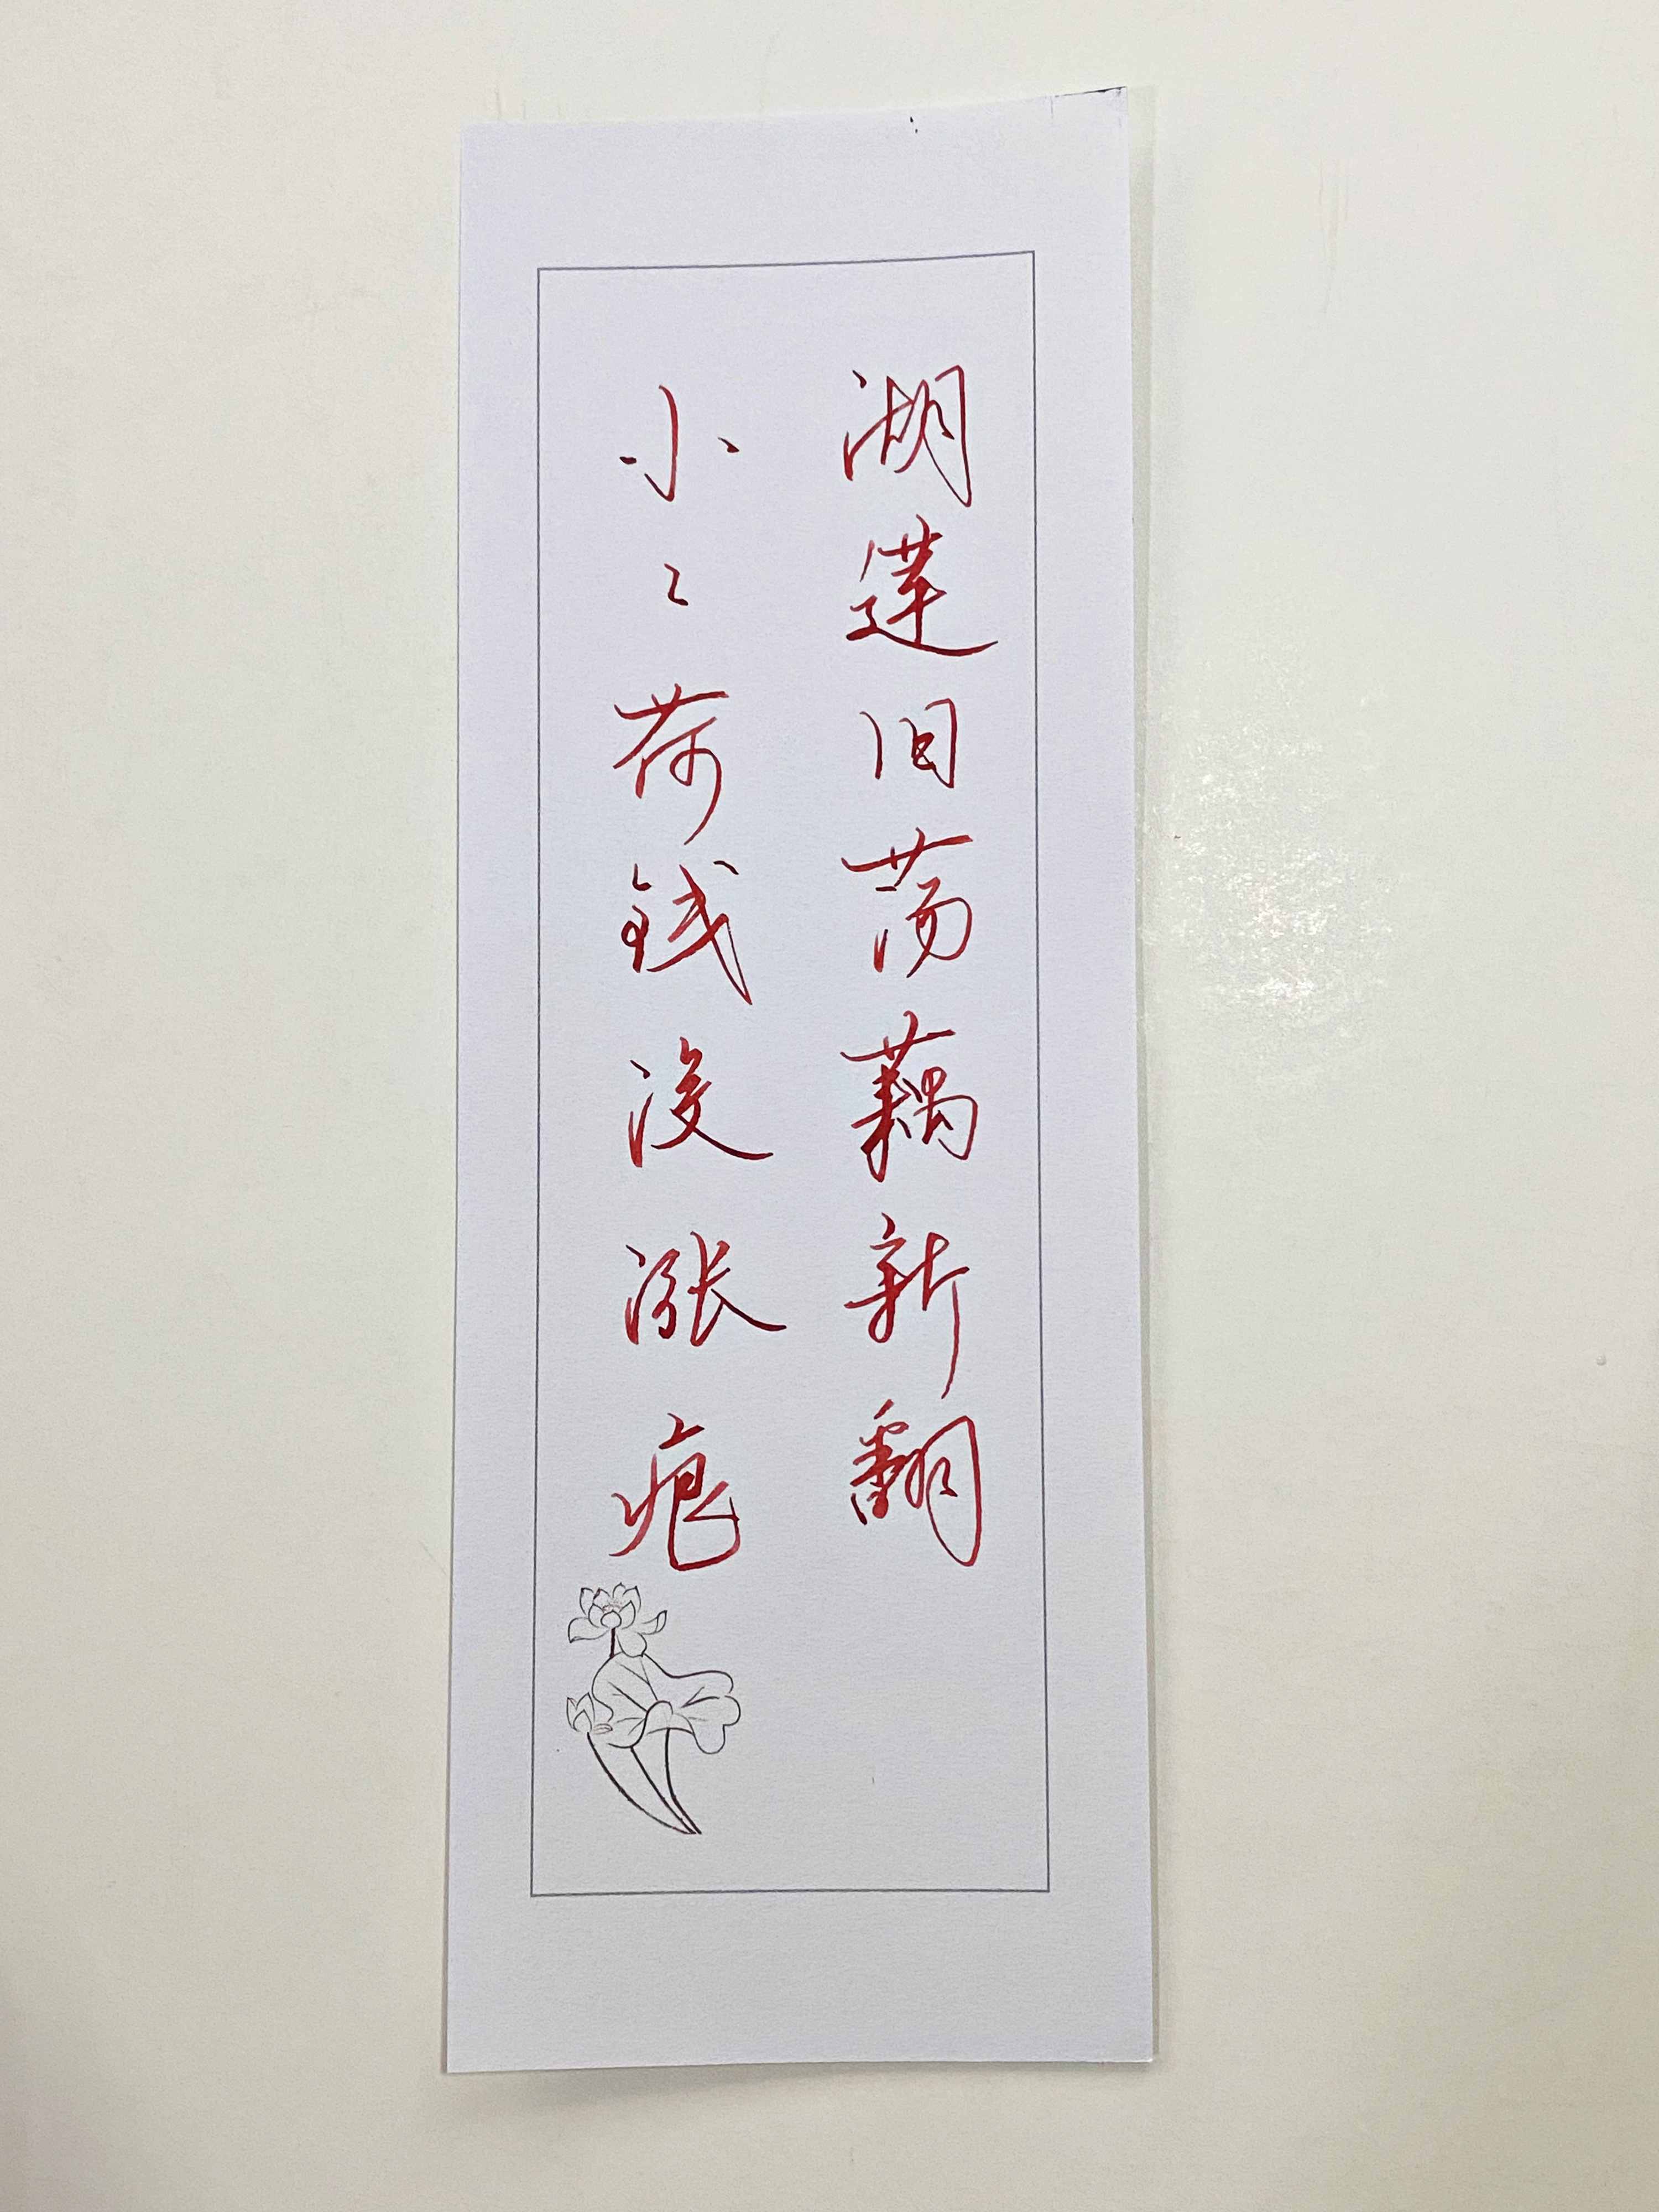 湖莲旧荡藕新翻
小〻荷钱没涨痕